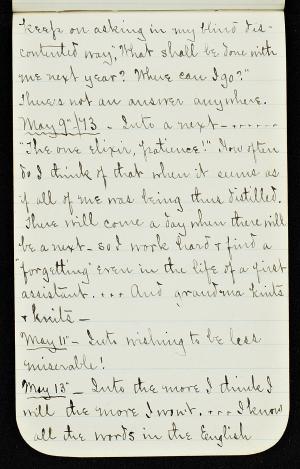 keep on asking in my blind dis-
contented way, "What shall be done with
me next year? Where can I go?"
There's not an answer anywhere.
May 9"/73 – Into a next – . . . . . .
"The one elixir, patience!" How often
do I think of that when it seems as
if all of me was being thus distilled.
There will come a day when there will
be a next – so I work hard & find a
"forgetting" even in the life of a first
assistant. . . . And grandma knits
& knits –
May 11" – Into wishing to be less
miserable!
May 13" – Into the more I think I
will the more I won't. . . . I know
all the words in the English